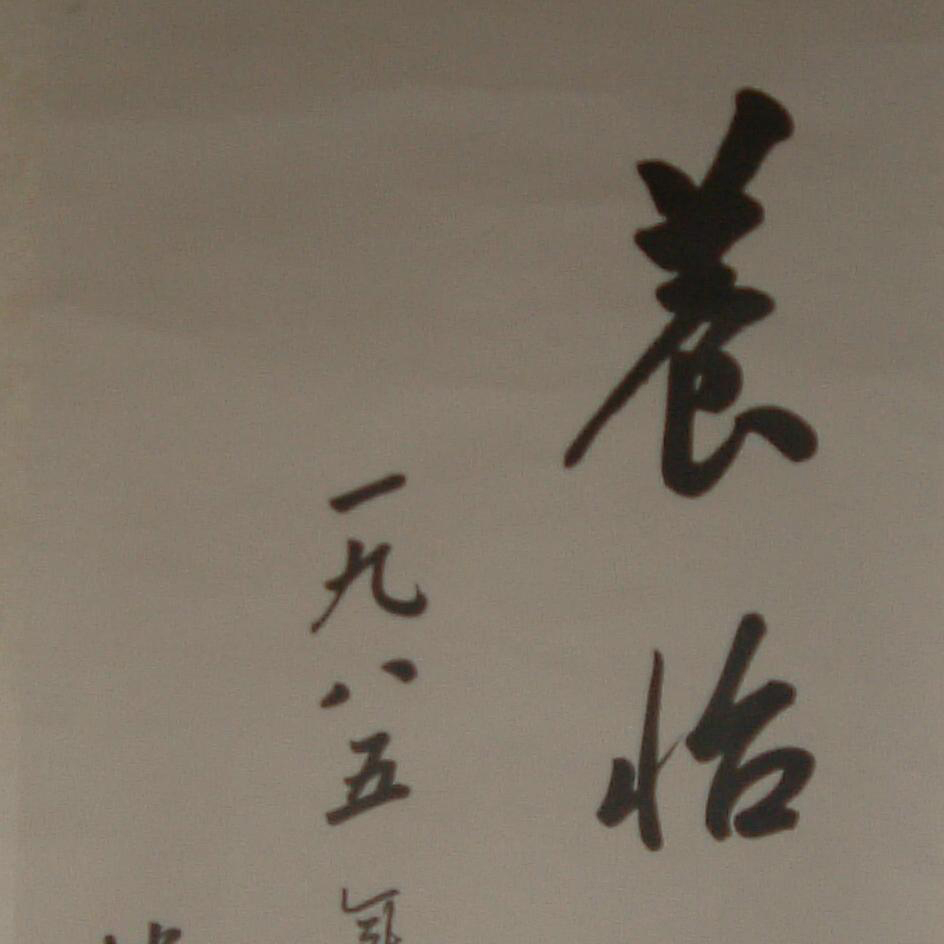 養怡
一九八五年